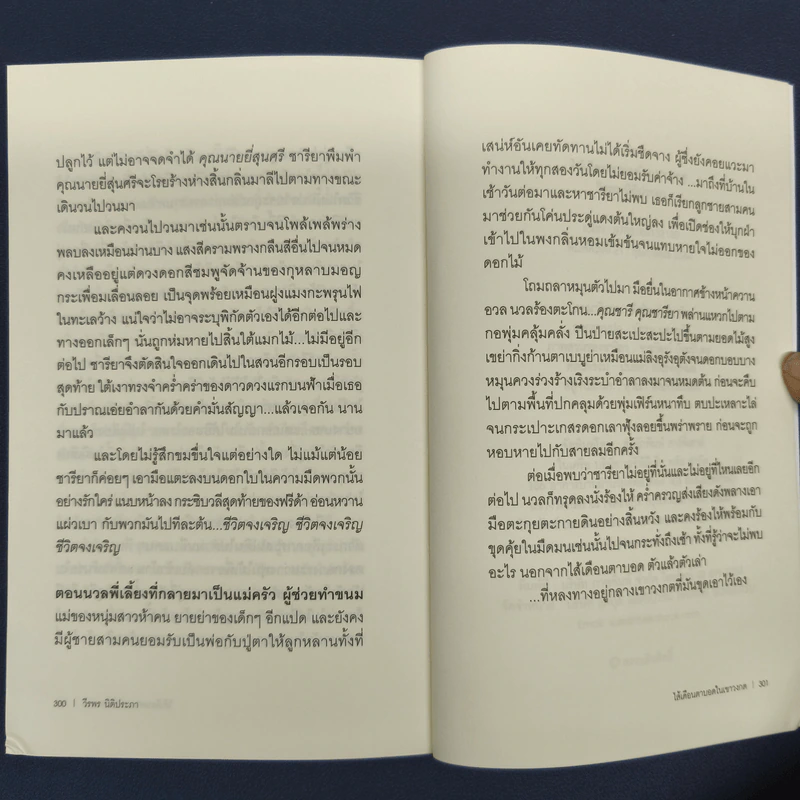 ปลูกไว้ แต่ไม่อาจจดจำได้ คุณนายยี่สุนศรี ชารียาพึมพำ
คุณนายยี่สุ่นศรีจะโรยร้างห่างสิ้นกลิ่นมาลีไปตามทางขณะ
เดินวนไปวนมา
และคงวนไปวนมาเช่นนั้นตราบจนโพล้เพล้พร่าง
พลบลงเหมือนม่านบาง แสงสีครามพรางกลืนสีอื่นไปจนหมด
คงเหลืออยู่แต่ดวงดอกสีชมพูจัดจ้านของกุหลาบมอญ
กระเพื่อมเลื่อนลอย เป็นจุดพร้อยเหมือนฝูงแมงกะพรุนไฟ
ในทะเลร้าง แน่ใจว่าไม่อาจระบุพิกัดตัวเองได้อีกต่อไปและ
ทางออกเล็กๆ นั่นถูกห่มหายไปสิ้นใต้แมกไม้...ไม่มีอยู่อีก
ต่อไป ชารียาจึงตัดสินใจออกเดินไปในสวนอีกรอบเป็นรอบ
สุดท้าย ใต้เงาทรงจำคร่ำคร่าของดาวดวงแรกบนฟ้าเมื่อเธอ
กับปราณเอ่ยอำลากันด้วยคำมั่นสัญญา...แล้วเจอกัน นาน
มาแล้ว
และโดยไม่รู้สึกขมขื่นใจแต่อย่างใด ไม่แม้แต่น้อย
ชารียาก็ค่อยๆ เอามือแตะลงบนดอกใบในความมืดพวกนั้น
อย่างรักใคร่ แนบหน้าลง กระซิบวลีสุดท้ายของฟรีด้า อ่อนหวาน
แผ่วเบา กับพวกมันไปทีละต้น...ชีวิตจงเจริญ ชีวิตจงเจริญ
ชีวิตจงเจริญ
ตอนนวลพี่เลี้ยงที่กลายมาเป็นแม่ครัว ผู้ช่วยทำขนม
แม่ของหนุ่มสาวห้าคน ยายย่าของเด็กๆ อีกแปด และยังคง
มีผู้ชายสามคนยอมรับเป็นพ่อกับปู่ตาให้ลูกหลานทั้งที่
300 | วีรพร นิติประภา
เสน่ห์อันเคยทัดทานไม่ได้เริ่มซีดจาง ผู้ซึ่งยังคอยแวะมา
ทำงานให้ทุกสองวันโดยไม่ยอมรับค่าจ้าง ...มาถึงที่บ้านใน
เช้าวันต่อมาและหาชารียาไม่พบ เธอก็เรียกลูกชายสามคน
มาช่วยกันโค่นประดู่แดงต้นใหญ่ลง เพื่อเปิดช่องให้บุกฝ่า
เข้าไปในพงกลิ่นหอมเข้มข้นจนแทบหายใจไม่ออกของ
ดอกไม้
โถมถลาหมุนตัวไปมา มือยื่นในอากาศข้างหน้าควาน
อวล นวลร้องตะโกน...คุณชารี คุณชารียา พล่านแหวกไปตาม
กอพุ่มคลุ้มคลั่ง ปีนป่ายสะเปะสะปะไปขึ้นตามยอดไม้สูง
เขย่ากิ่งก้านตาเบบูย่าเหมือนแม่ลิงอุรังอุตังจนดอกบอบบาง
หมุนควงร่วงร้างเริงระบำอำลาลงมาจนหมดต้น ก่อนจะคืบ
ไปตามพื้นที่ปกคลุมด้วยพุ่มเฟิร์นหนาทึบ ตบปะเหลาะไล่
จนกระเปาะเกสรดอกเลาฟุ้งลอยขึ้นพร่าพราย ก่อนจะถูก
หอบหายไปกับสายลมอีกครั้ง
ต่อเมื่อพบว่าชารียาไม่อยู่ที่นั่นและไม่อยู่ที่ไหนเลยอีก
ต่อไป นวลก็ทรุดลงนั่งร้องไห้ คร่ำครวญส่งเสียงดังพลางเอา
มือตะกุยตะกายดินอย่างสิ้นหวัง และคงร้องไห้พร้อมกับ
ขุดคุ้ยในมืดมนเช่นนั้นไปจนกระทั่งถึงเช้า ทั้งที่รู้ว่าจะไม่พบ
อะไร นอกจากไส้เดือนตาบอด ตัวแล้วตัวเล่า
...ที่หลงทางอยู่กลางเขาวงกตที่มันขุดเอาไว้เอง
ไส้เดือนตาบอดในเขาวงกต | 301